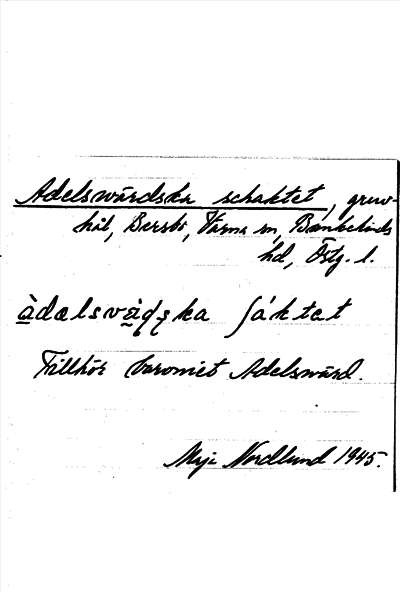 Adelswärdska schaktet, gruv-
hål, Bersbo, Värna sn, Bankekinds
hd, Östg. l.
àdælsvä̀ḍṣka ʃáktæt
Tillhör baroniet Adelswärd.
Maja Nordlund 1945.